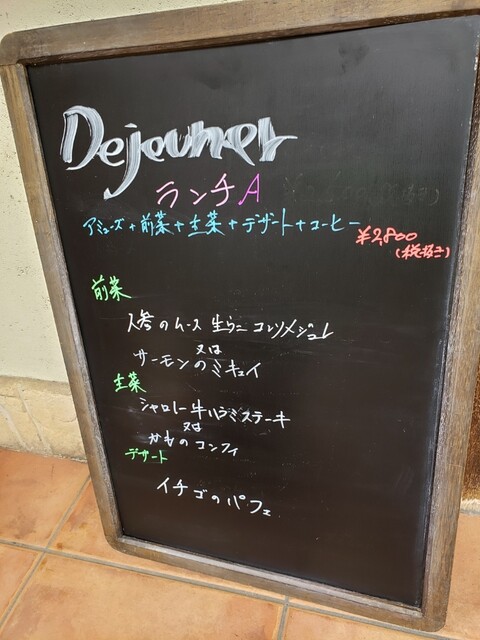 Dejeuner
ランチA
アミューズ+前菜+主菜+デザート+コーヒー
¥2,800
(税抜き)
前菜
人参のムース 生うに コンソメジュレ
又は
サーモンのミキュイ
主菜
シャロレー牛ハラミステーキ
又は
かものコンフィ
デザート
イチゴのパフェ